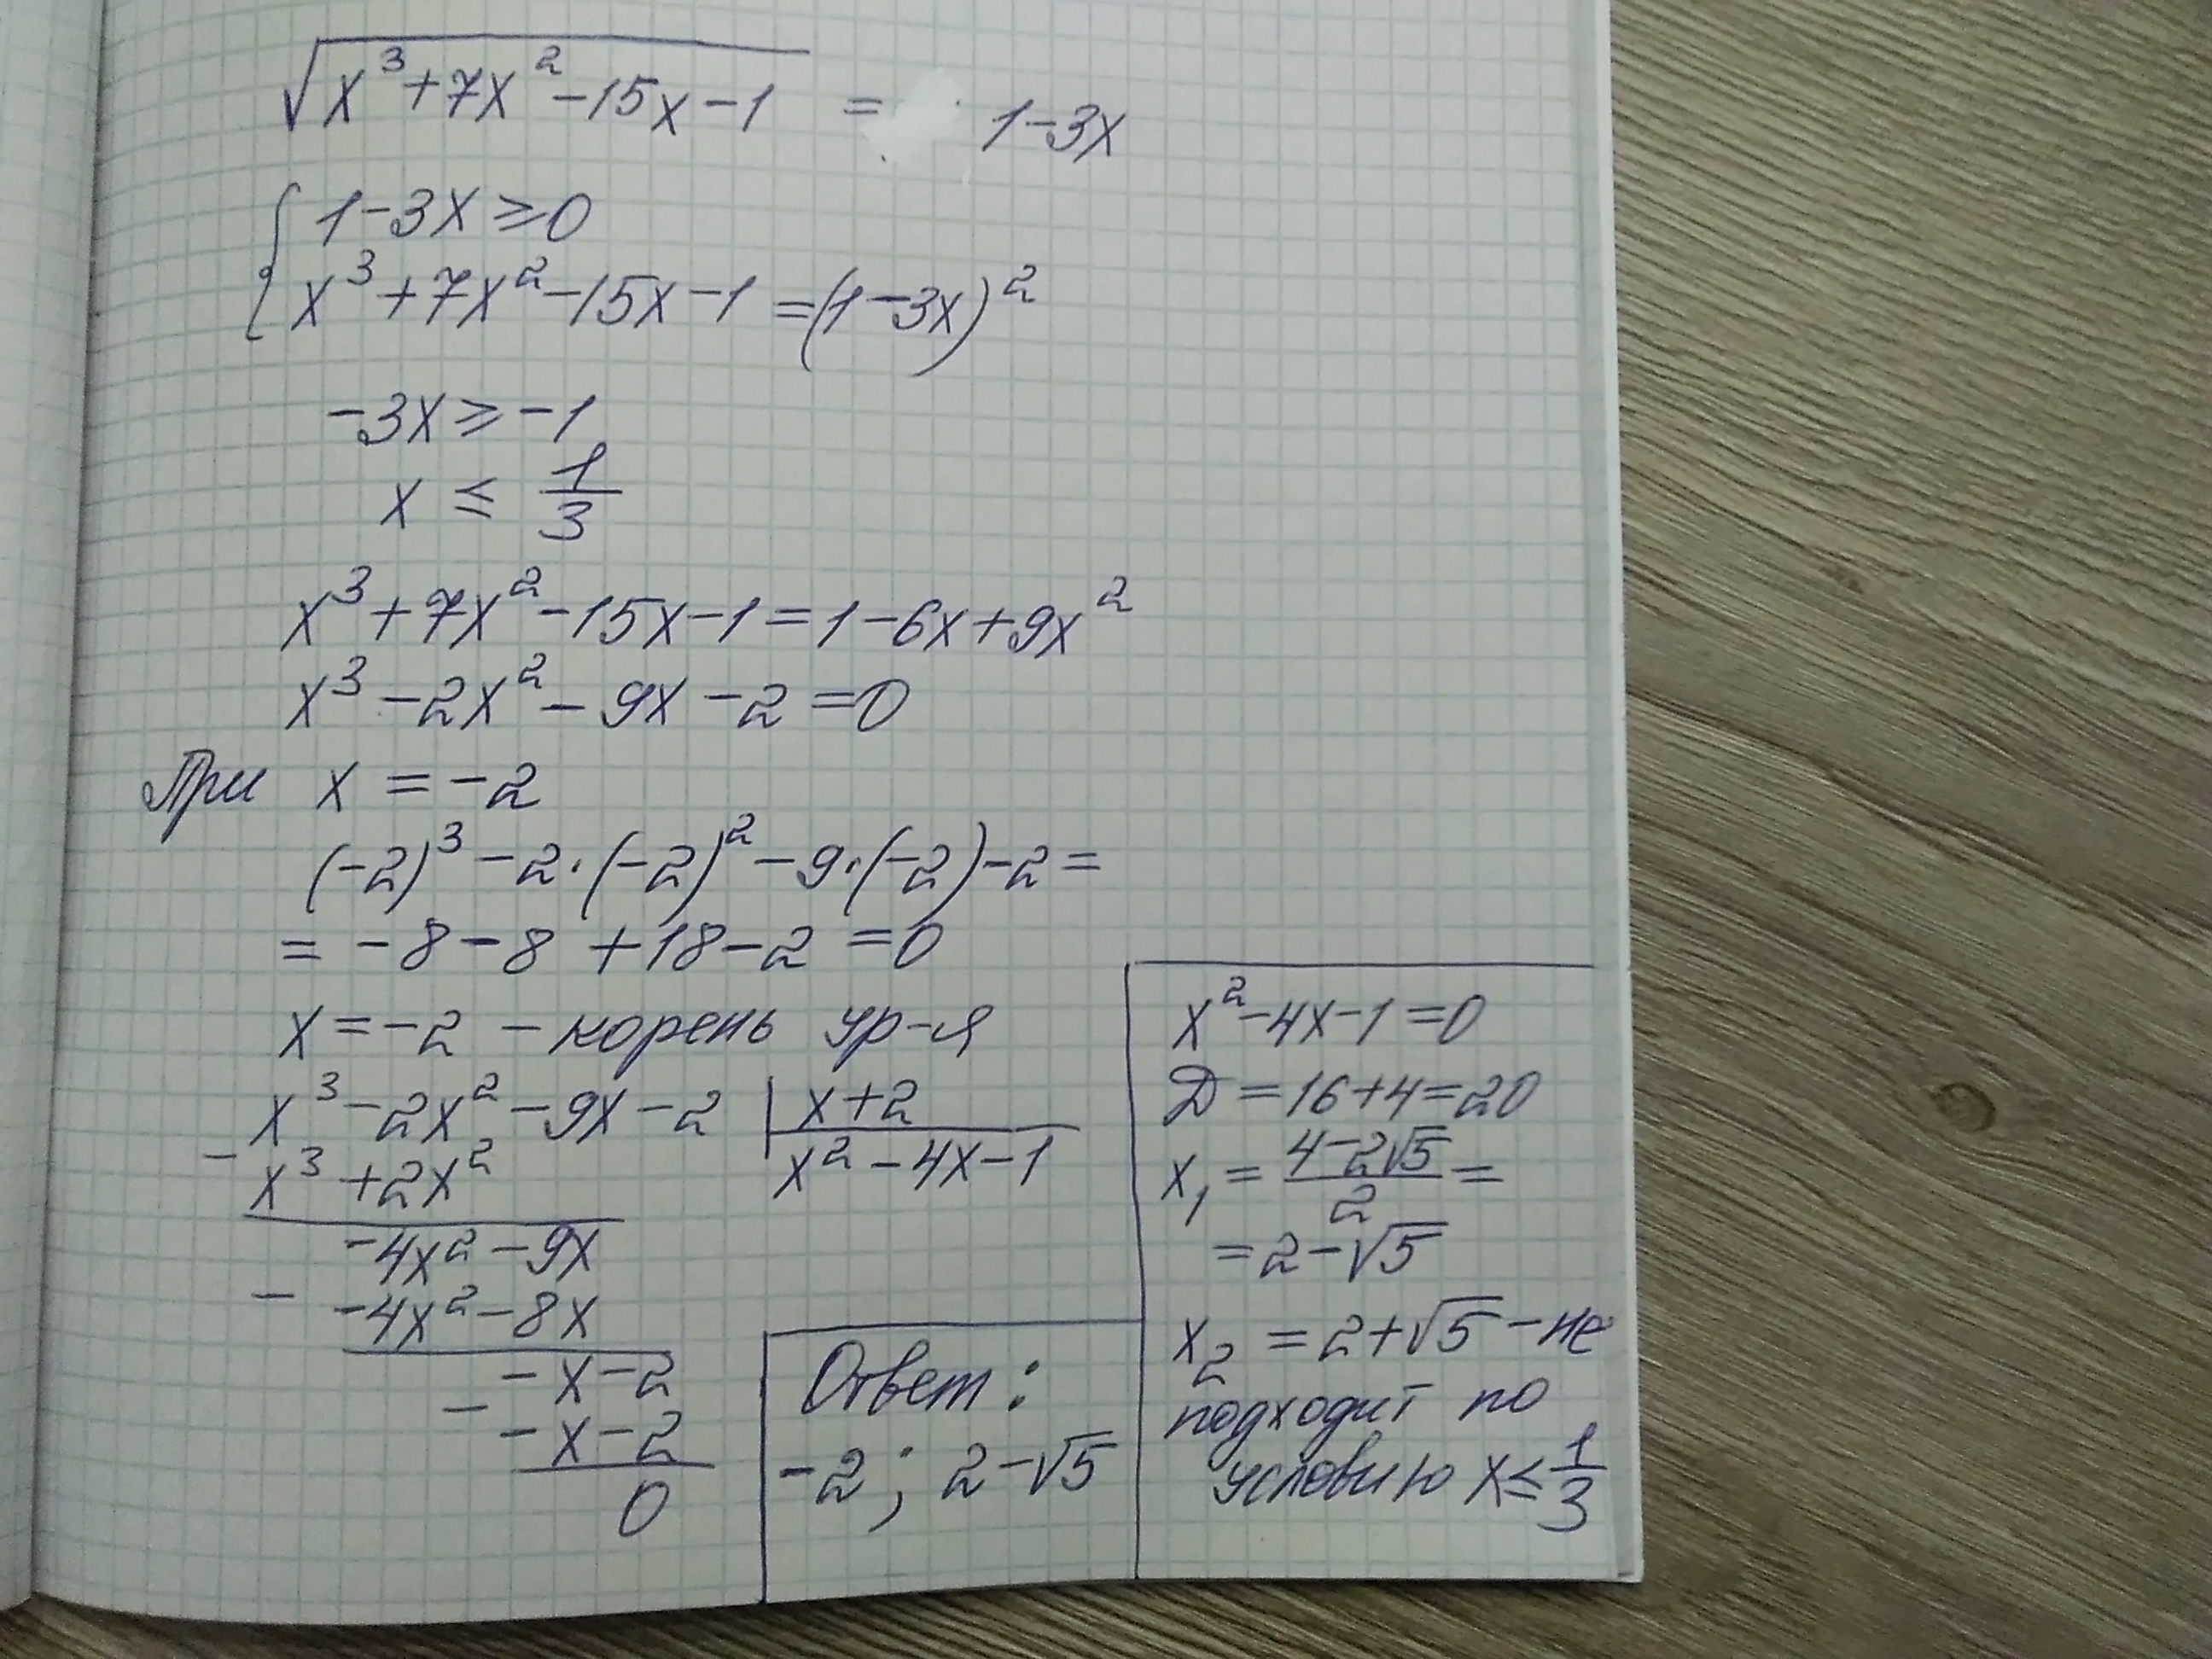 √(x³+7x²-15x-1) = 1-3x
{ 1-3x ≥ 0
x³+7x²-15x-1 = (1-3x)²
-3x ≥ -1
x ≤ 1/3
x³+7x²-15x-1 = 1-6x+9x²
x³-2x²-9x-2 = 0
При x = -2
(-2)³-2·(-2)²-9·(-2)-2 =
= -8-8+18-2 = 0
x = -2 - корень ур-я
x³-2x²-9x-2 | x+2
- x³+2x² x²-4x-1
-4x²-9x
- -4x²-8x
-x-2
- -x-2
0
x²-4x-1=0
Д = 16+4=20
x₁ = (4-2√5)/2 =
= 2-√5
x₂ = 2+√5 - не
подходит по
условию x ≤ 1/3
Ответ:
-2; 2-√5